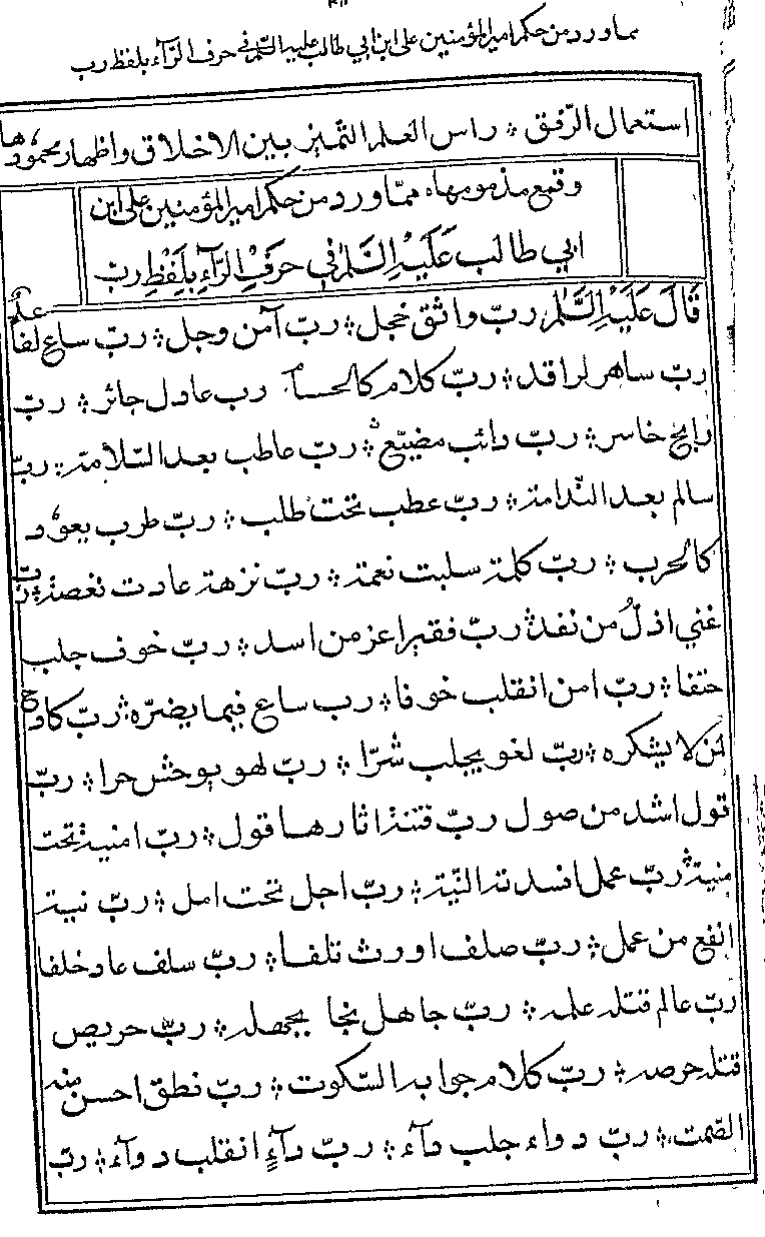 مما ورد من حكم امير المؤمنين علي ابن ابي طالب عليه السّلم في حرف الرّآء بلفظ رب
استعمال الرّفق ؛ راس العلم التّميز بين الاخلاق واظهار محمودها
وقمع مذمومها، ممّا ورد من حكم امير المؤمنين علي ابن
ابي طالب عَلَيْهِ السَّلٰم في حَرفِ الرّآءِ بِلَفْظِ ربّ
قَالَ عَلَيْهِ السَّلٰم ربّ واثق خجل ؛ ربّ آمن وجل ؛ ربّ ساع لقاعد
ربّ ساهر لراقد ؛ ربّ كلام كالحسام رب عادل جائر ؛ ربّ
رابح خاسر ؛ ربّ دائب مضيّع ؛ ربّ عاطب بعد السّلامة ؛ ربّ
سالم بعد النّدامة ؛ ربّ عطب تحت طلب ؛ ربّ طرب يعود
كالحرب ؛ ربّ كلمة سلبت نعمة ؛ ربّ نزهة عادت نغصة ؛ ربّ
غني اذلّ من نقد ؛ ربّ فقير اعز من اسد ؛ ربّ خوف جلب
حتفا ؛ ربّ امن انقلب خوفا ؛ رب ساع فيما يضرّه ؛ ربّ كادح
لمن لا يشكره ؛ ربّ لغو يجلب شرّا ؛ ربّ لهو يوحش حرا ؛ ربّ
قول اشد من صول ربّ فتنة اثارها قول ؛ ربّ امنية تحت
منية ؛ ربّ عمل افسدته النّية ؛ ربّ اجل تحت امل ؛ ربّ نية
انفع من عمل ؛ ربّ صلف اورث تلفا ؛ ربّ سلف عاد خلفا
ربّ عالم قتله علمه ؛ ربّ جاهل نجا بجهله ؛ ربّ حريص
قتله حرصه ؛ ربّ كلام جوابه السّكوت ؛ ربّ نطق احسن منه
الصّمت ؛ ربّ دواء جلب دآء ؛ ربّ دآءٍ انقلب دوآء ؛ ربّ